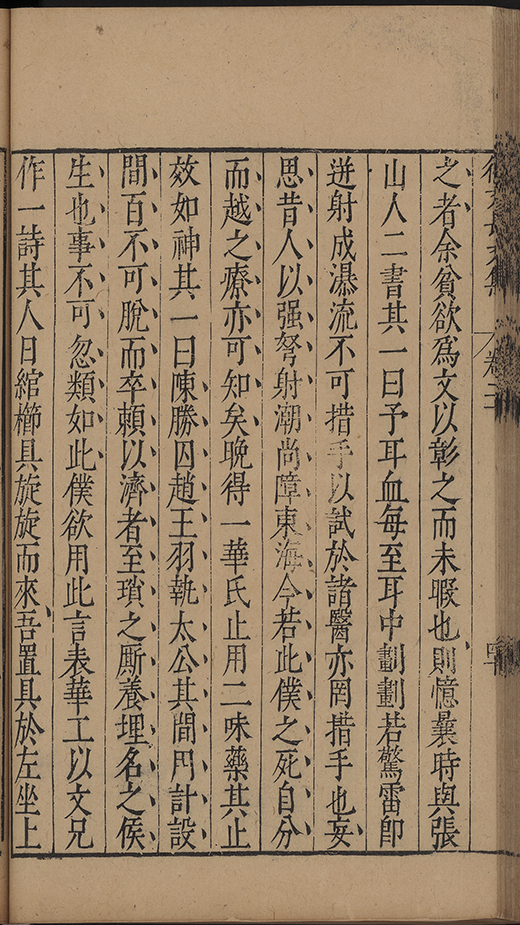 徐文長文集　卷二十　四十
之者余貧欲爲文以彰之而未暇也則憶曩時與張
山人二書其一曰予耳血每至耳中劃劃若驚雷卽
迸射成瀑流不可措手以試於諸醫亦罔措手也妄
思昔人以强弩射潮尚障東海今若此僕之死自分
而越之療亦可知矣晚得一華氏止用二味藥其止
效如神其一曰陳勝囚趙王羽執太公其間門計設
間百不可脫而卒頼以濟者至瑣之厮養埋名之侯
生也事不可忽類如此僕欲用此言表華工以文兄
作一詩其人日綰櫛具旋旋而來吾置具於左坐上